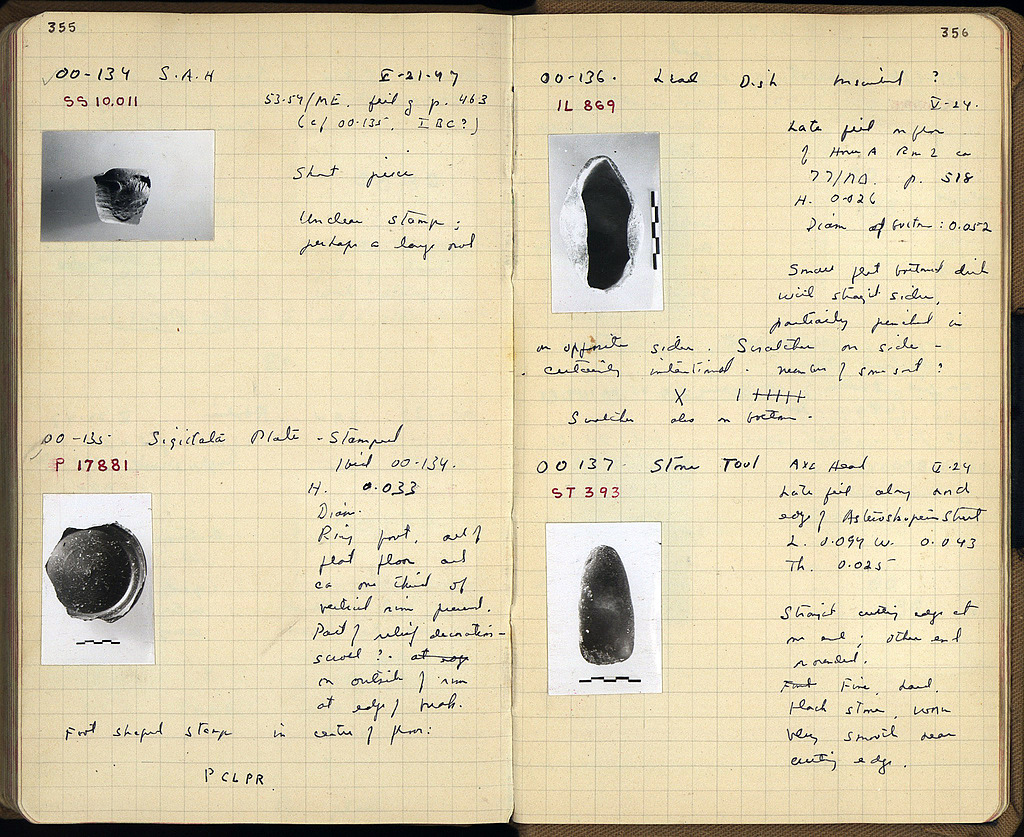 355
OO-134 S.A.H V-21-47
SS 10,011
53-54/ME. p. 463
(cf OO-135, I BC?)
Short piece
Unclear stamp;
perhaps a large owl
OO-135 Sigillata Plate - Stamped
P 17881
Ibid OO-134.
H. 0.033
Diam.
Ring foot, all of
flat floor and
ca one third of
vertical rim present.
Part of relief decoration -
scroll?
on outside of rim
at edge of break.
Foot shaped stamp in centre of floor:
P CLPR
356
OO-136. Lead Dish Inscribed ?
IL 869
V-24.
Late fill on floor
of House A Rm 2 ca
77/ p. 518
H. 0.026
Diam of bottom: 0.052
Small flat bottomed dish
with straight sides,
partially pinched in
on opposite sides. Scratches on side -
certainly intentional. of some sort ?
X I +++++
Scratches also on bottom.
OO 137 Stone Tool Axe Head V-24
ST 393
Late fill along
edge of Asteroskopeion Street
L. 0.099 W. 0.043
Th. 0.025
Straight cutting edge at
one end; other end
rounded.
Fine, hard,
black stone, worn
very smooth near
cutting edge.